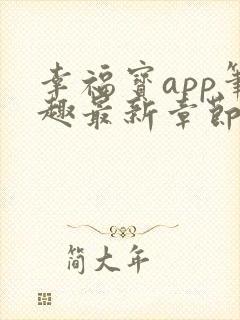 幸福宝app笔
趣最新章节
简大年